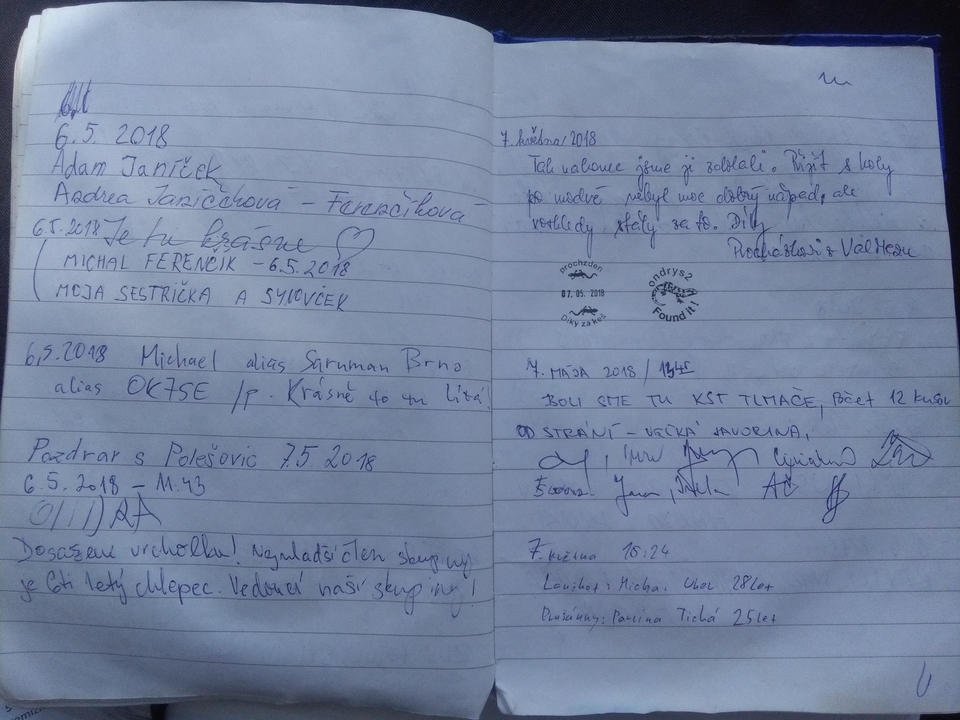 6.5. 2018
Adam Janíček
Andrea Janíčková - Ferenčíková
6.5.2018 Je tu krásne
MICHAL FERENČÍK - 6.5.2018
MOJA SESTRIČKA A SYNOVČEK
6.5.2018 Michael alias Saruman Brno
alias OK7SE /p. Krásně to tu lítá!
Pozdrav s Polešovic 7.5 2018
6.5.2018 - M.43
Dosažení vrcholku! Nejmladší člen skupiny
je 6ti letý chlepec. Vedoucí naší skupiny!
7. května 2018
Tak nakonec jsme ji zdolali. Přijít s koly
po modré nebyl moc dobrý nápad, ale
rozhledy stály za to. Díky
Procházkovi z
prochzden
07. 05. 2018
Díky za keš
ondrys2
Found it!
7. MÁJA 2018 /
BOLI SME TU KST TLMAČE, Počet 12 kusov
OD STRÁNÍ - VEĽKÁ JAVORINA,
7. května 16:24
28 let
Pavlína Tichá 25 let